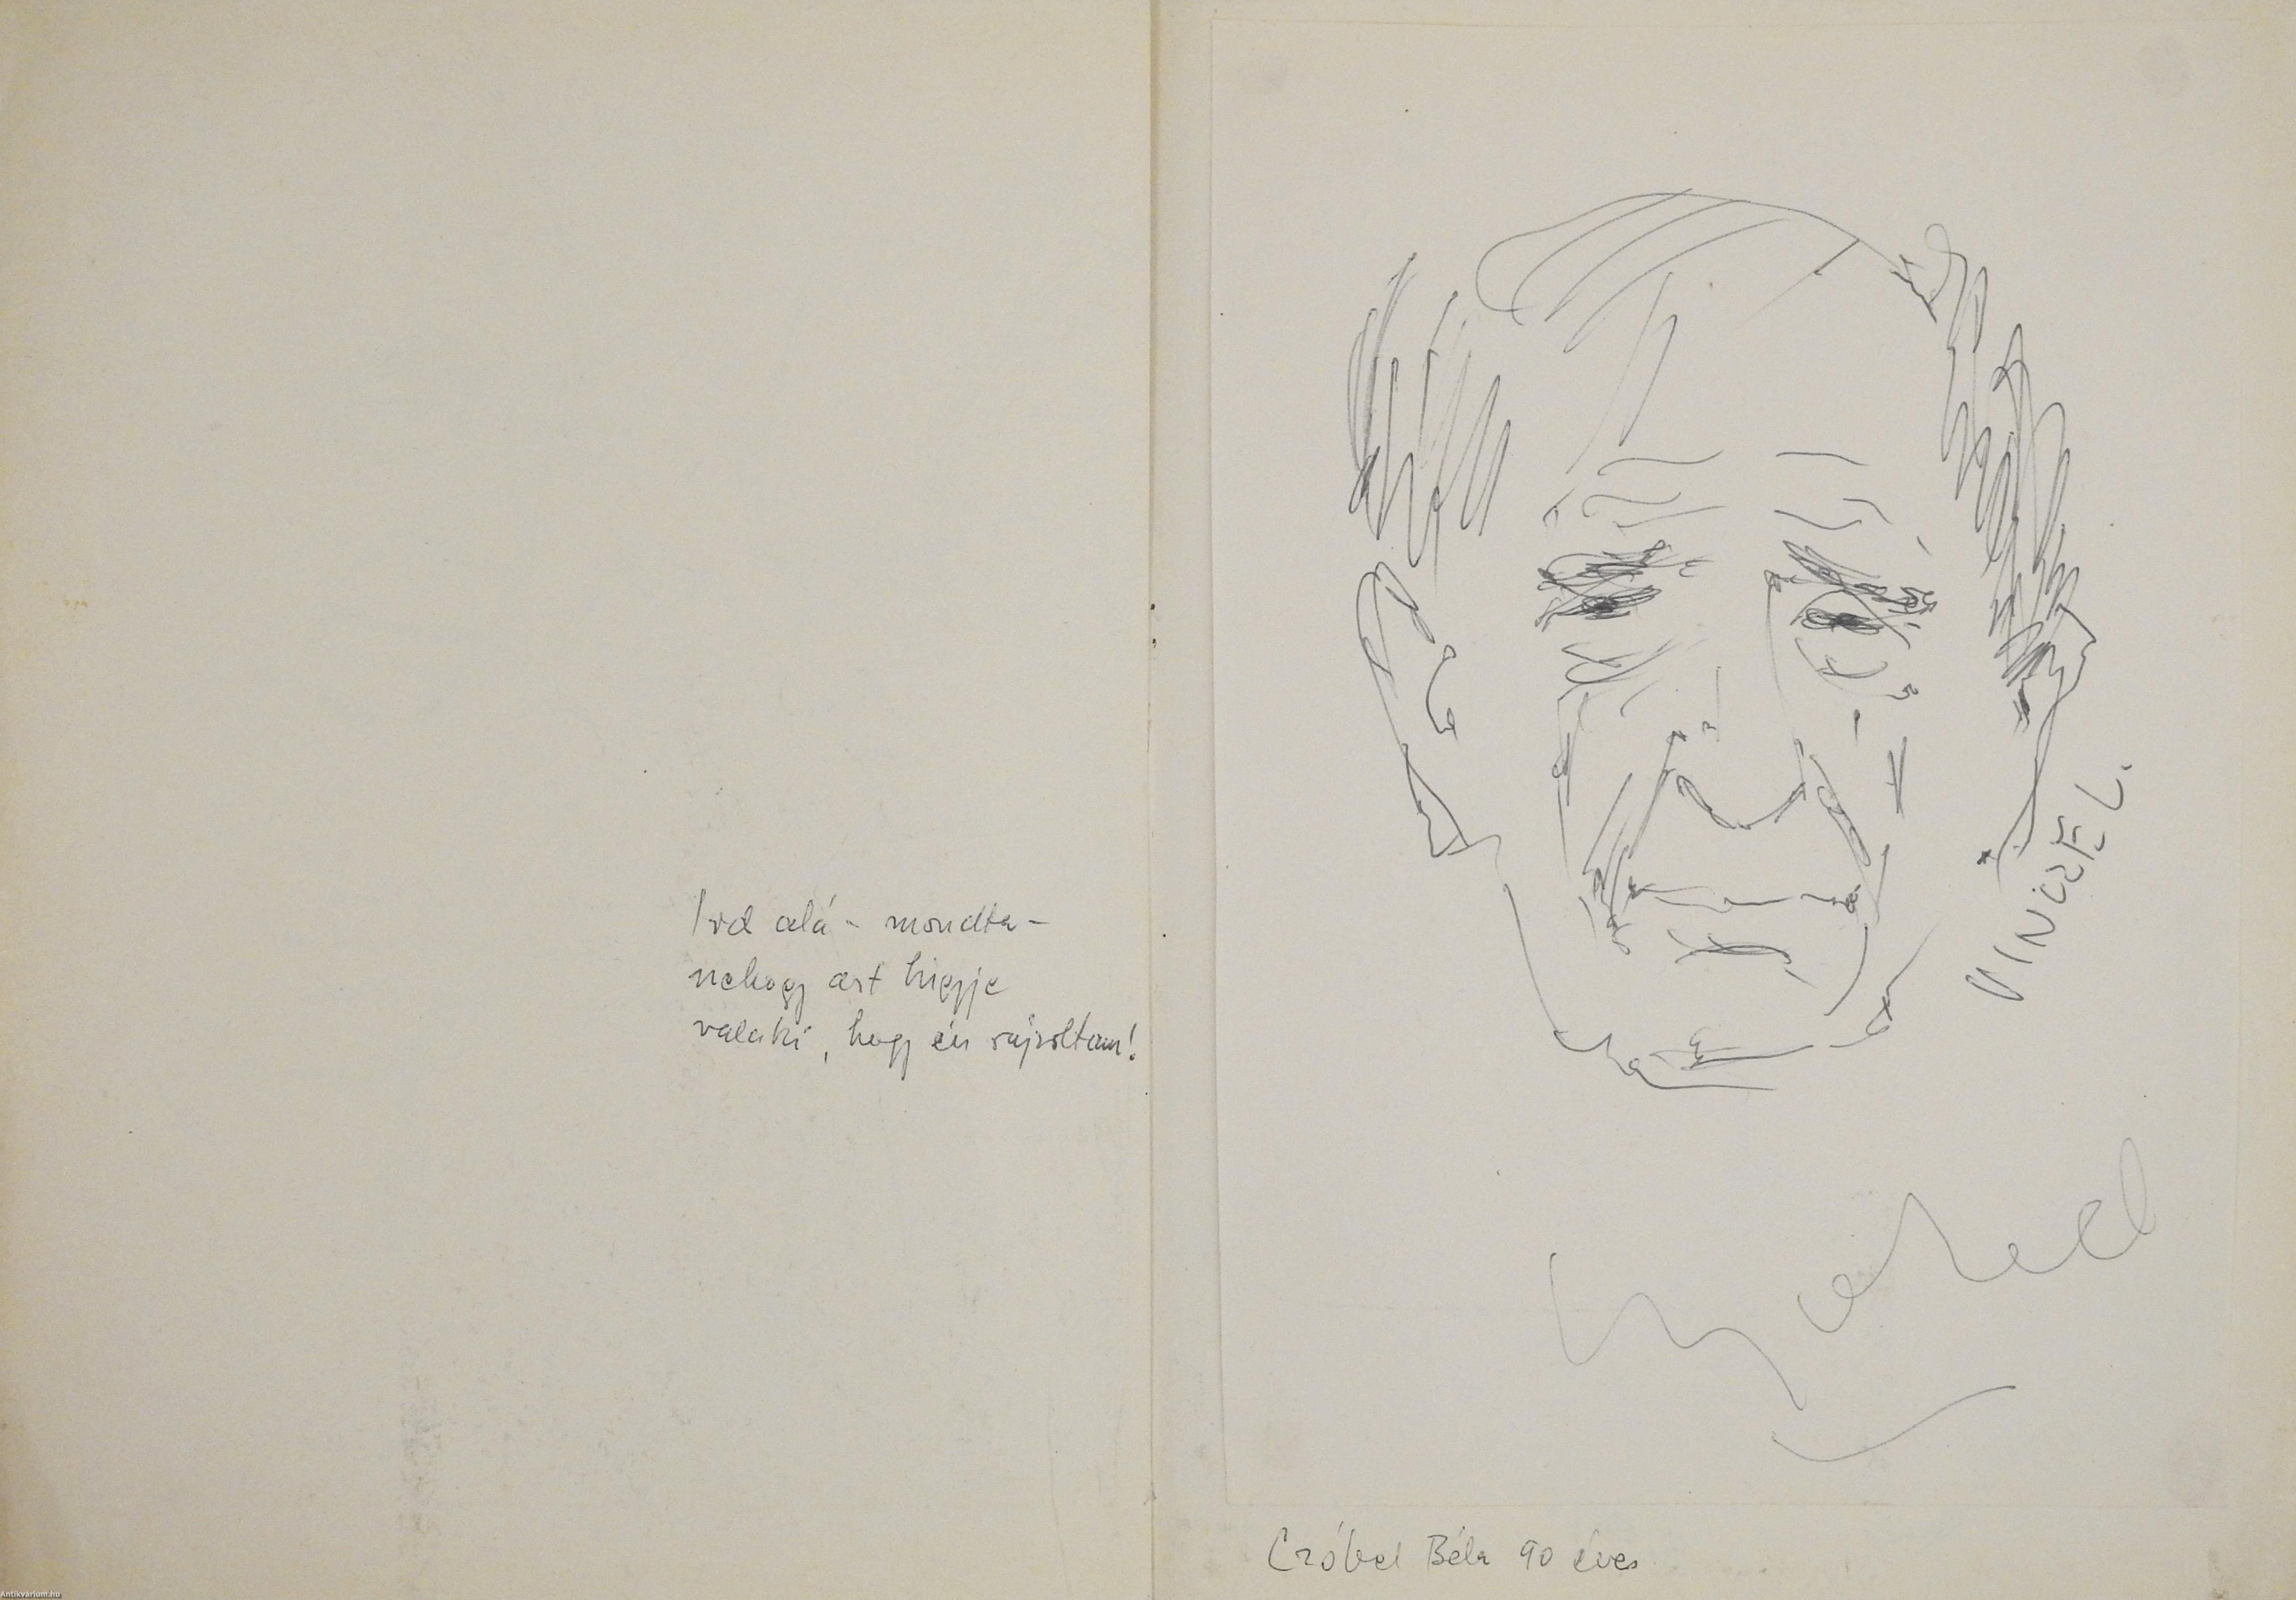 Írd alá - mondta -
nehogy azt higyje
valaki, hogy én rajzoltam!
VINCZE L.
Czóbel
Czóbel Béla 90 éves
Antikvárium.hu